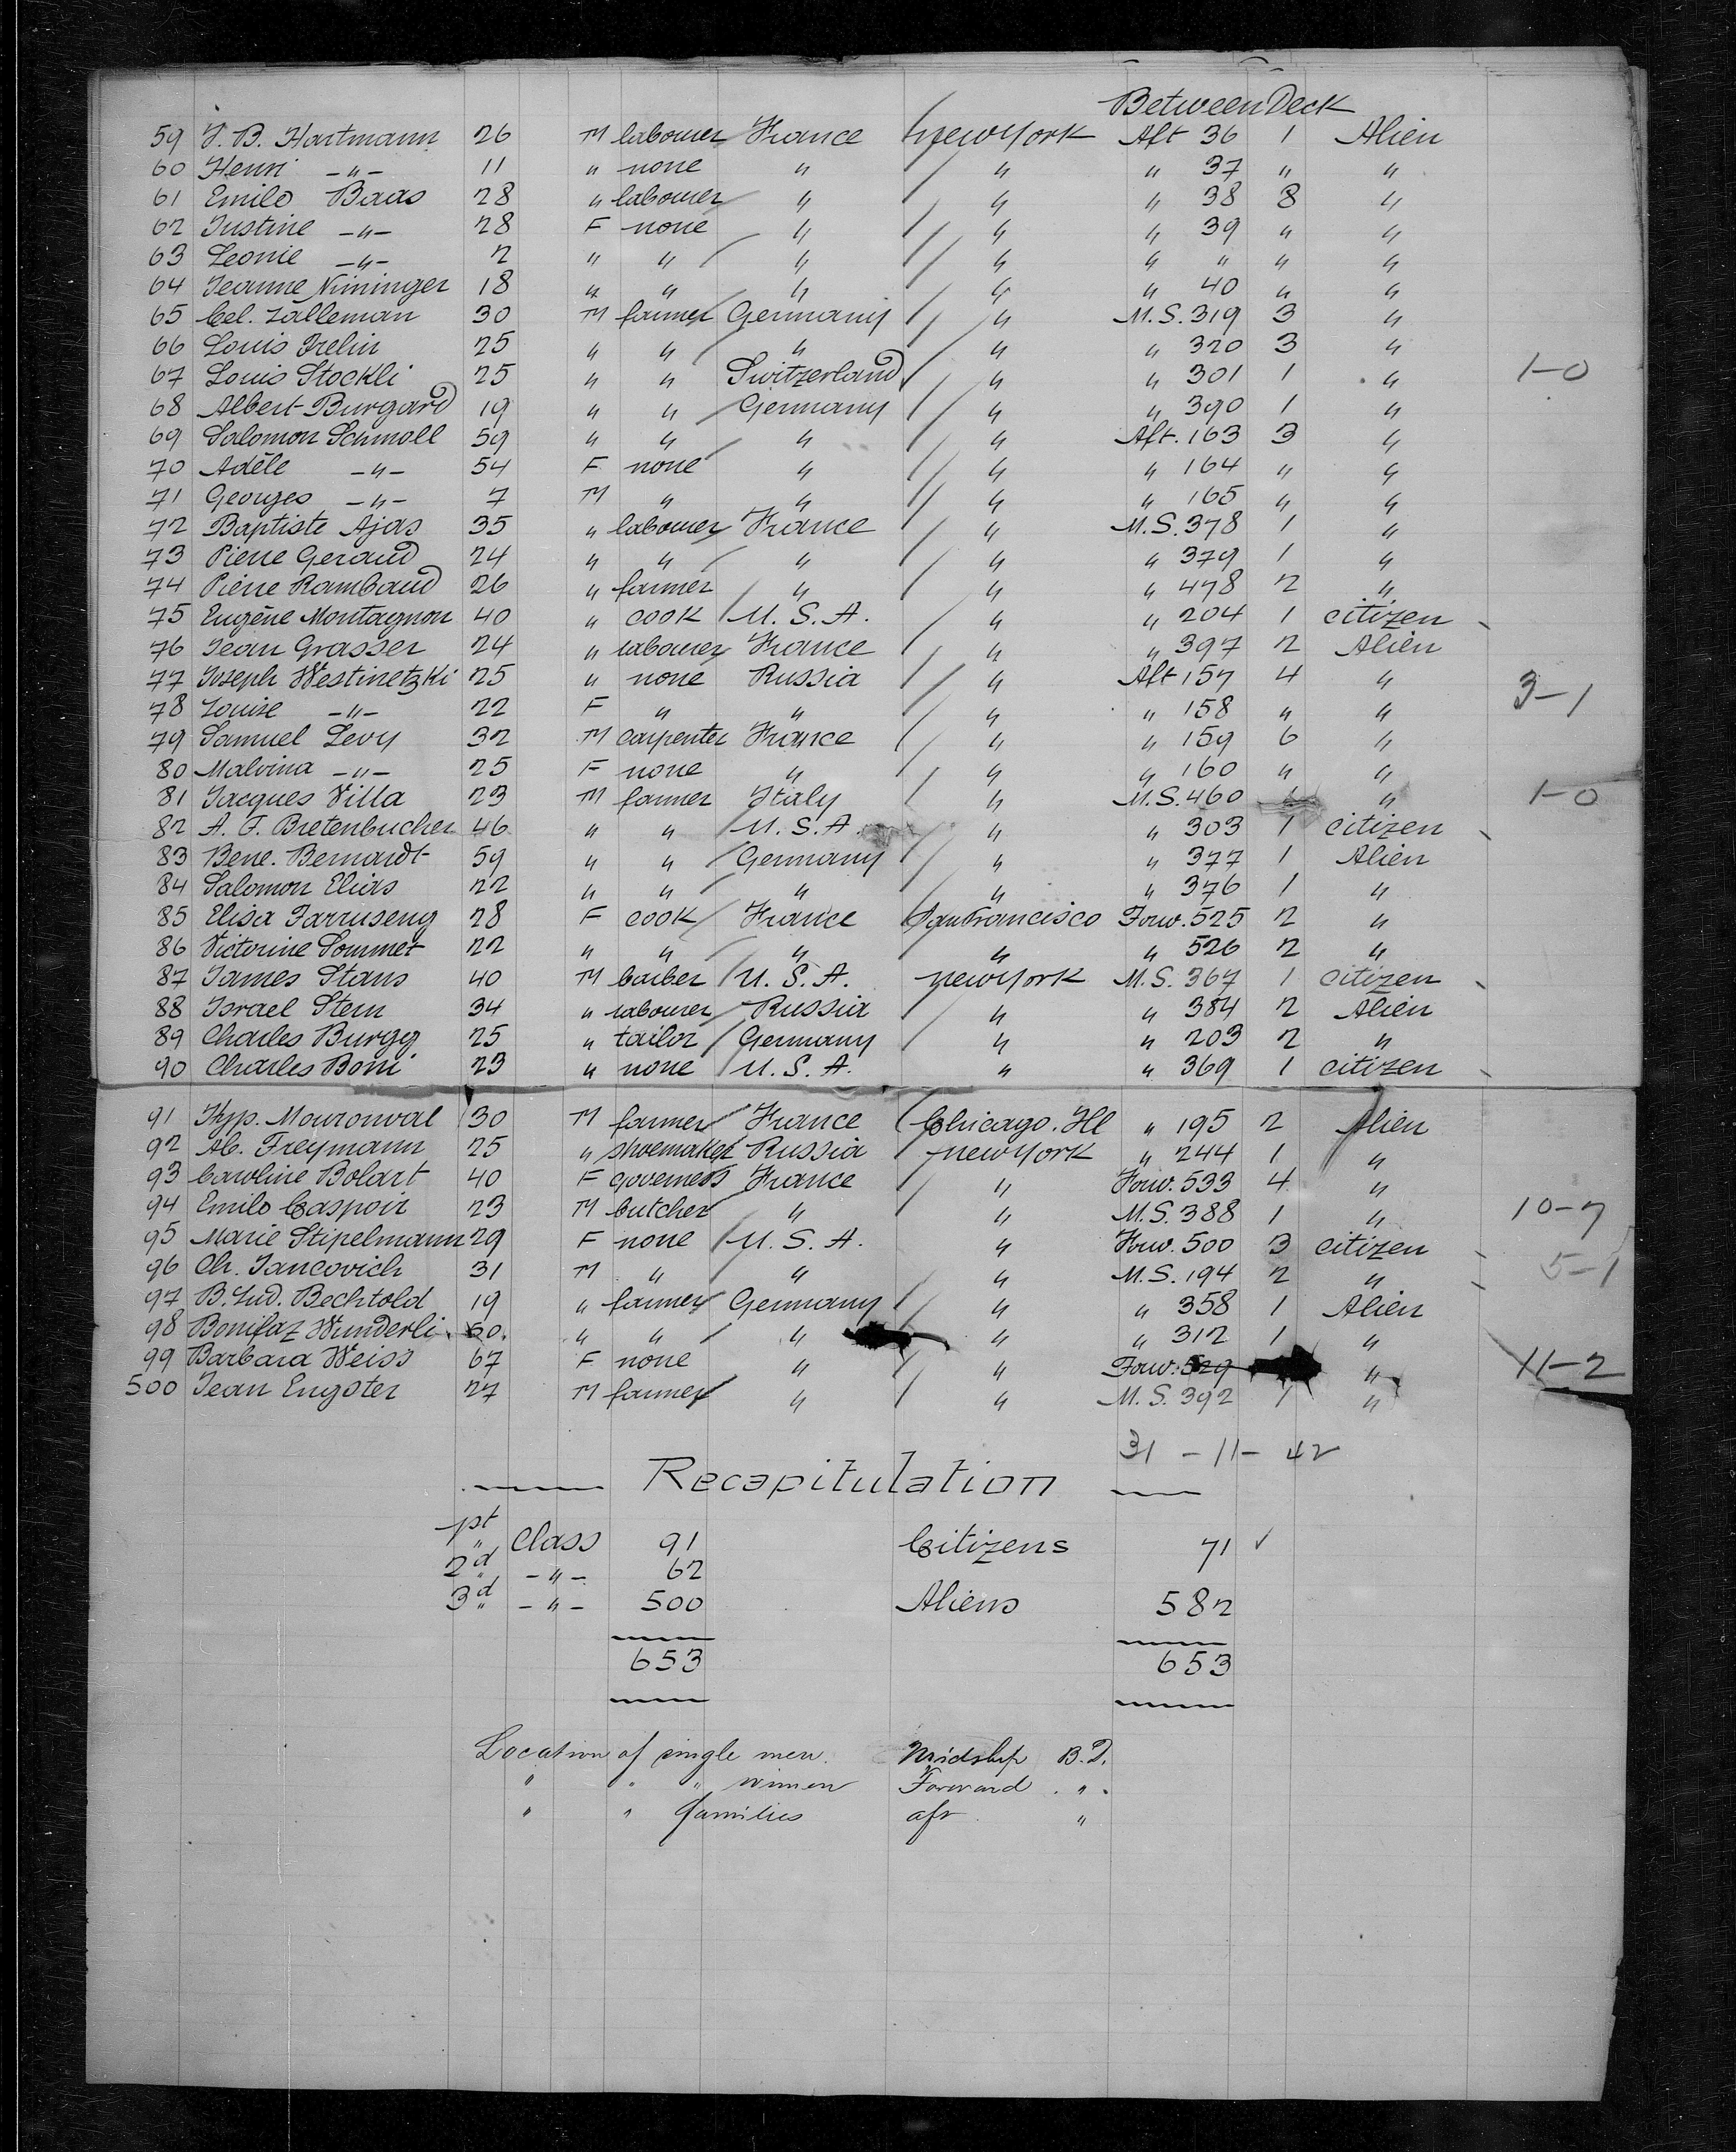 Between Deck
59 J. B. Hartmann 26 M labourer France New York Aft 36 1 Alien
60 Henri -"- 11 " none " " " 37 " "
61 Emile Baas 28 " labourer " " " 38 8 "
62 Justine -"- 28 F none " " " 39 " "
63 Leonie -"- 2 " " " " " " " "
64 Jeanne Nininger 18 " " " " " 40 " "
65 Cel. Zalleman 30 M farmer Germany " M.S. 319 3 "
66 Louis Frelin 25 " " " " " 320 3 "
67 Louis Stockli 25 " " Switzerland " " 301 1 " 1-0
68 Albert Burgard 19 " " Germany " " 390 1 "
69 Salomon Schmoll 59 " " " " Aft. 163 3 "
70 Adèle -"- 54 F none " " " 164 " "
71 Georges -"- 7 M " " " " 165 " "
72 Baptiste Ajas 35 " labourer France " M.S. 378 1 "
73 Pierre Geraud 24 " " " " " 379 1 "
74 Pierre Rambaud 26 " farmer " " " 478 2 "
75 Eugène Montagnon 40 " cook U. S. A. " " 204 1 citizen
76 Jean Grasser 24 " labourer France " " 397 2 Alien
77 Joseph Westinetzki 25 " none Russia " Aft 157 4 "
78 Louise -"- 22 F " " " " 158 " " 3-1
79 Samuel Levy 32 M carpenter France " " 159 6 "
80 Malvina -"- 25 F none " " " 160 " "
81 Jacques Villa 23 M farmer Italy " M.S. 460 " 1-0
82 A. F. Bretenbucher 46 " " U. S. A. " " 303 1 citizen
83 Bene. Bernardt 59 " " Germany " " 377 1 Alien
84 Salomon Elias 22 " " " " " 376 1 "
85 Elisa Jarruseng 28 F cook France San Francisco Forw. 525 2 "
86 Victorine Sommet 22 " " " " " 526 2 "
87 James Stans 40 M barber U. S. A. New York M.S. 367 1 citizen
88 Israel Stern 34 " labourer Russia " " 384 2 Alien
89 Charles Burgy 25 " tailor Germany " " 203 2 "
90 Charles Boni 23 " none U. S. A. " " 369 1 citizen
91 Hyp. Mouronval 30 M farmer France Chicago. Ill " 195 2 Alien
92 Ab. Freymann 25 " shoemaker Russia New York " 244 1 "
93 Caroline Bolart 40 F governess France " Forw. 533 4 "
94 Emile Caspoir 23 M butcher " " M.S. 388 1 " 10-7
95 Marie Stipelmann 29 F none U. S. A. " Forw. 500 3 citizen
96 Ch. Jancovich 31 M " " " M.S. 194 2 " 5-1
97 B. Lud. Bechtold 19 " farmer Germany " " 358 1 Alien
98 Bonifaz Wunderli 50 " " " " " 312 1 "
99 Barbara Weiss 67 F none " " Forw. 529 " 11-2
500 Jean Engster 27 M farmer " " M.S. 392 1 "
31 - 11 - 42
Recapitulation
1st Class 91 Citizens 71 ✓
2d -"- 62
3d -"- 500 Aliens 582
653 653
Location of single men. Midship B.D.
" " " women Forward "
" " families aft "